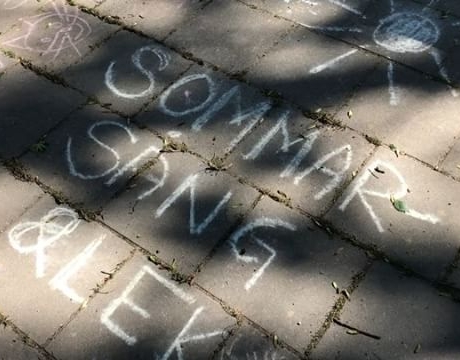 SOMMAR
SÅNG
&LEK